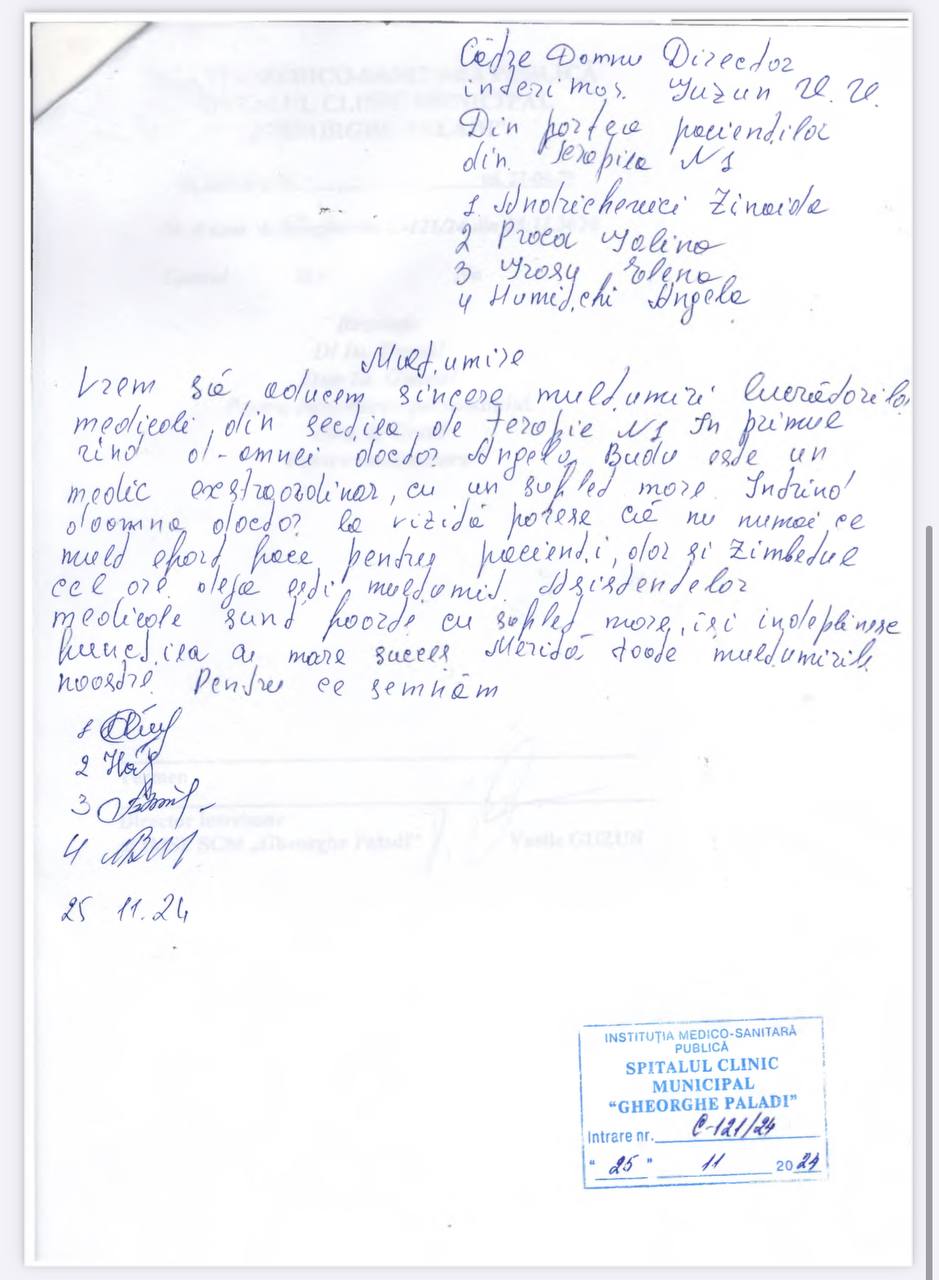 Către Domnu Director
interimar. Guzun V. V.
Din partea pacienților
din Terapia N1
1 Andrichevici Zinaida
2 Proca Galina
3 Grosu Elena
4 Humițchi Angela
Mulțumire
Vrem să aducem sincere mulțumiri lucrătorilor
medicali din secția de terapie N1 În primul
rînd d-amnei doctor Angela Budu este un
medic exstraordinar, cu un suflet mare. Intrînd
doamna doctor la vizită parese că nu numai ce
mult efort face pentru pacienți, dar și zîmbetul
cel are deja ești mulțumit. Asistentelor
medicale sunt foarte cu suflet mare, iși indeplinesc
funcția cu mare succes Merită toate mulțumirile
noastre. Pentru ce semnăm
1
2
3
4
25 11.24
Director Interimar
SCM „Gheorghe Paladi” Vasile GUZUN
INSTITUȚIA MEDICO-SANITARĂ
PUBLICĂ
SPITALUL CLINIC
MUNICIPAL
“GHEORGHE PALADI”
Intrare nr. C-121/24
“ 25 ” 11 20 24